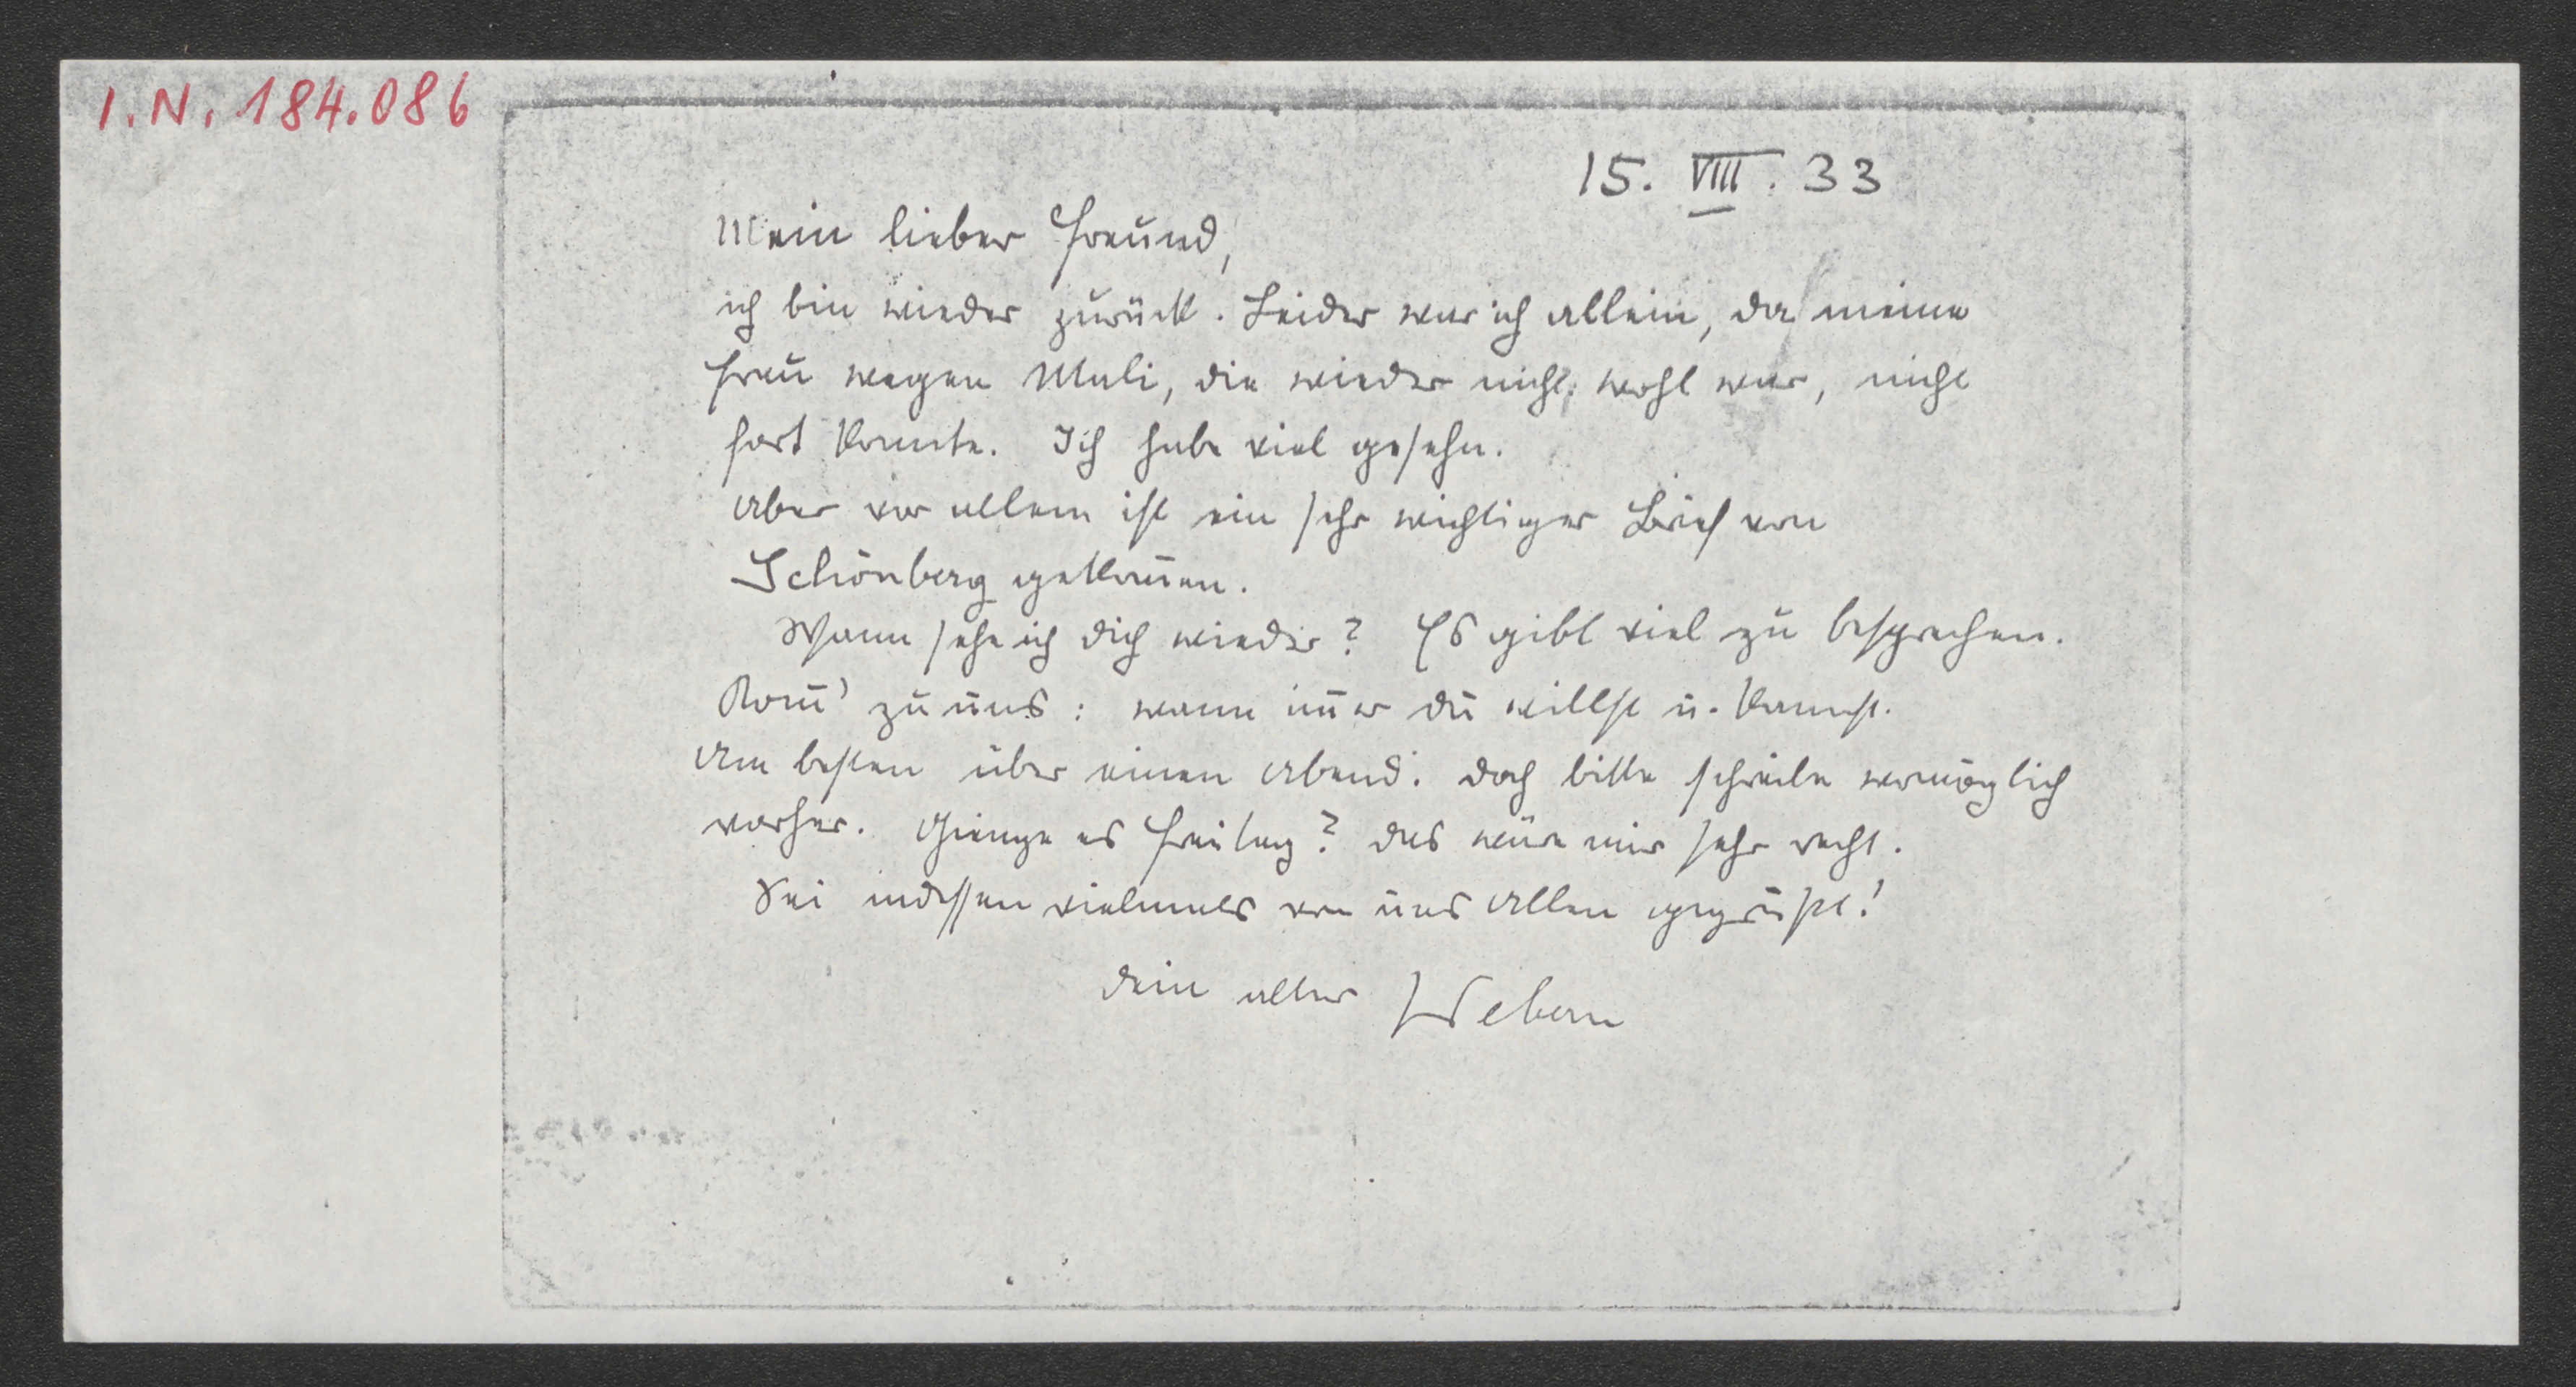 I.N. 184.086
15. VIII. 33
Mein lieber Freund,
ich bin wieder zurück. Leider war ich allein, da meine
Frau wegen Mali, die wieder nicht wohl war, nicht
fort konnte. Ich habe viel gesehn.
Aber vor allem ist ein sehr wichtiger Brief von
Schönberg gekom̄en.
Wann sehe ich Dich wieder? Es gibt viel zu besprechen.
Kom̄' zu uns: wann im̄er Du willst u. kannst.
Am besten über einen Abend. Doch bitte schreibe womöglich
vorher. Gienge es Freitag? Das wäre mir sehr recht.
Sei indessen vielmals von uns Allen gegrüßt!
Dein alter Webern